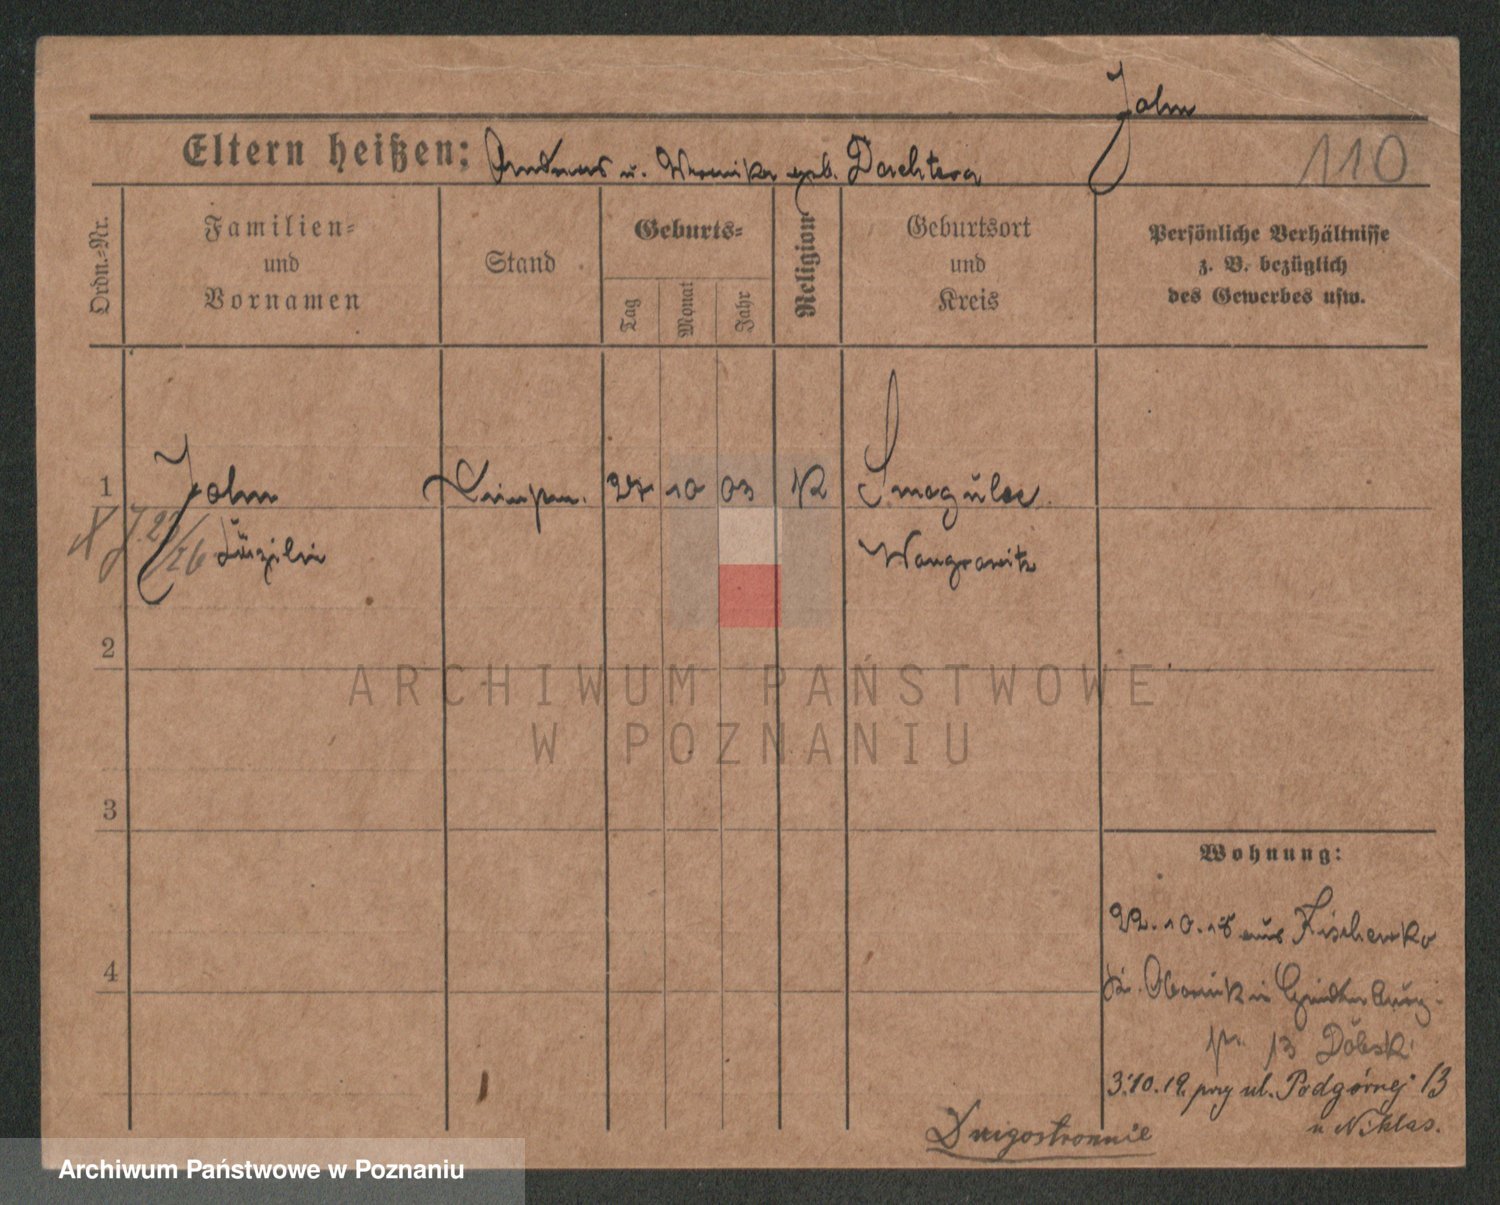 Jahn
Eltern heißen: Andreas u. Veronika geb. Dachtera
110
Ordn.-Nr.
Familien-
und
Vornamen
Stand
Geburts-
Tag
Monat
Jahr
Religion
Geburtsort
und
Kreis
Persönliche Verhältnisse
z. B. bezüglich
des Gewerbes usw.
1
Jahn
27 10 03 K
Smogulec
Wongrowitz
2
ARCHIWUM PAŃSTWOWE
W POZNANIU
3
Wohnung:
22.10.18 aus
4
Obornik
13
3.10.19. przy ul. Podgórnej 13
u Niklas.
Dwgostronnie
Archiwum Państwowe w Poznaniu